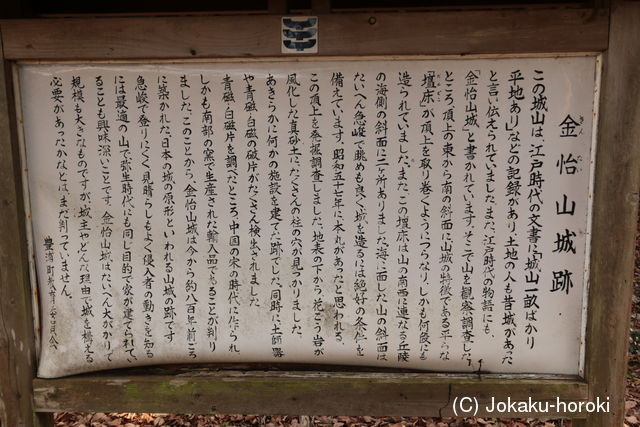 金怡山城跡
きん たい
この城山は、江戸時代の文書に「城山一畝ばかり
平地あり」などの記録があり、土地の人も昔城があった
と言い伝えられていました。また、江戸時代の物語にも、
「金怡山城」と書かれています。そこで山を観察調査した
ところ、頂上の東から南の斜面に、山城の特徴である平らな
壇床が、頂上を取り巻くようにつらなり、しかも何段にも
造られていました。また、この壇床は山の南西に連なる丘陵
の海側の斜面に二ヶ所ありました。海に面した山の斜面は
たいへん急峻で眺めも良く、城を造るには絶好の条件を
備えています。昭和五十七年に本丸があったと思われる、
この頂上を発掘調査しました。地表の下から、花こう岩が
風化した真砂土に、たくさんの柱の穴が見つかりました。
あきらかに何かの施設を建てた跡でした。同時に、土師器
や青磁・白磁の破片がたくさん検出されました。
青磁・白磁片を調べたところ、中国の宋の時代に作られ
しかも南部の窯で生産された輸入品であることが判り
ました。このことから、金怡山城は今から約八百年前ころ
に築かれた、日本の城の原形といわれる山城の跡です。
急峻で登りにくく、見晴らしもよく、侵入者の動きを知る
には最適の山で、弥生時代にも同じ目的で家が建てられて、
ることも興味深いことです。金怡山城はたいへん大がかりで
規模も大きなものですが、城主やどんな理由で城を構える
必要があったかなどは、まだ判っていません。
豊浦町教育委員会
(C) Jokaku-horoki